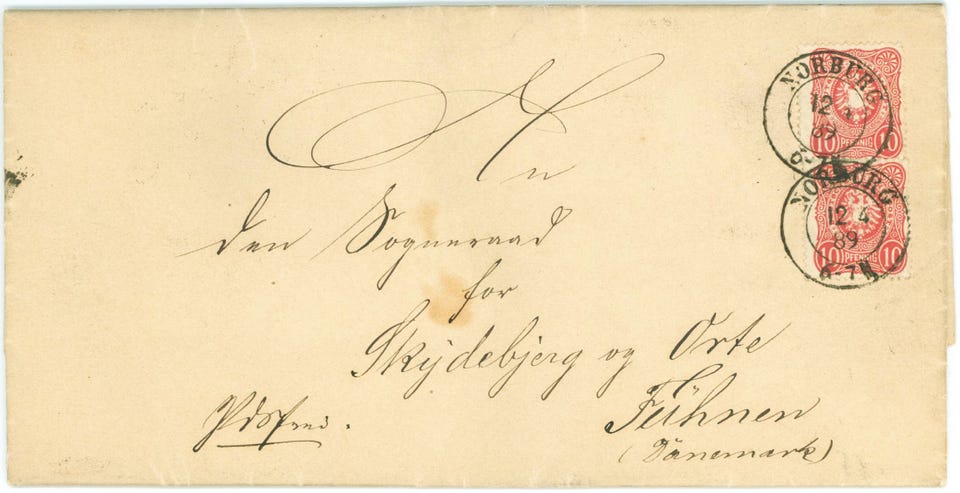 An
den Sogneraad
for
Skydebjerg og Orte
Fühnen
(Dänemark)
NORBURG
12 4
89
6-7N
10 PFENNIG 10
NORBURG
12 4
89
6-7N
10 PFENNIG 10